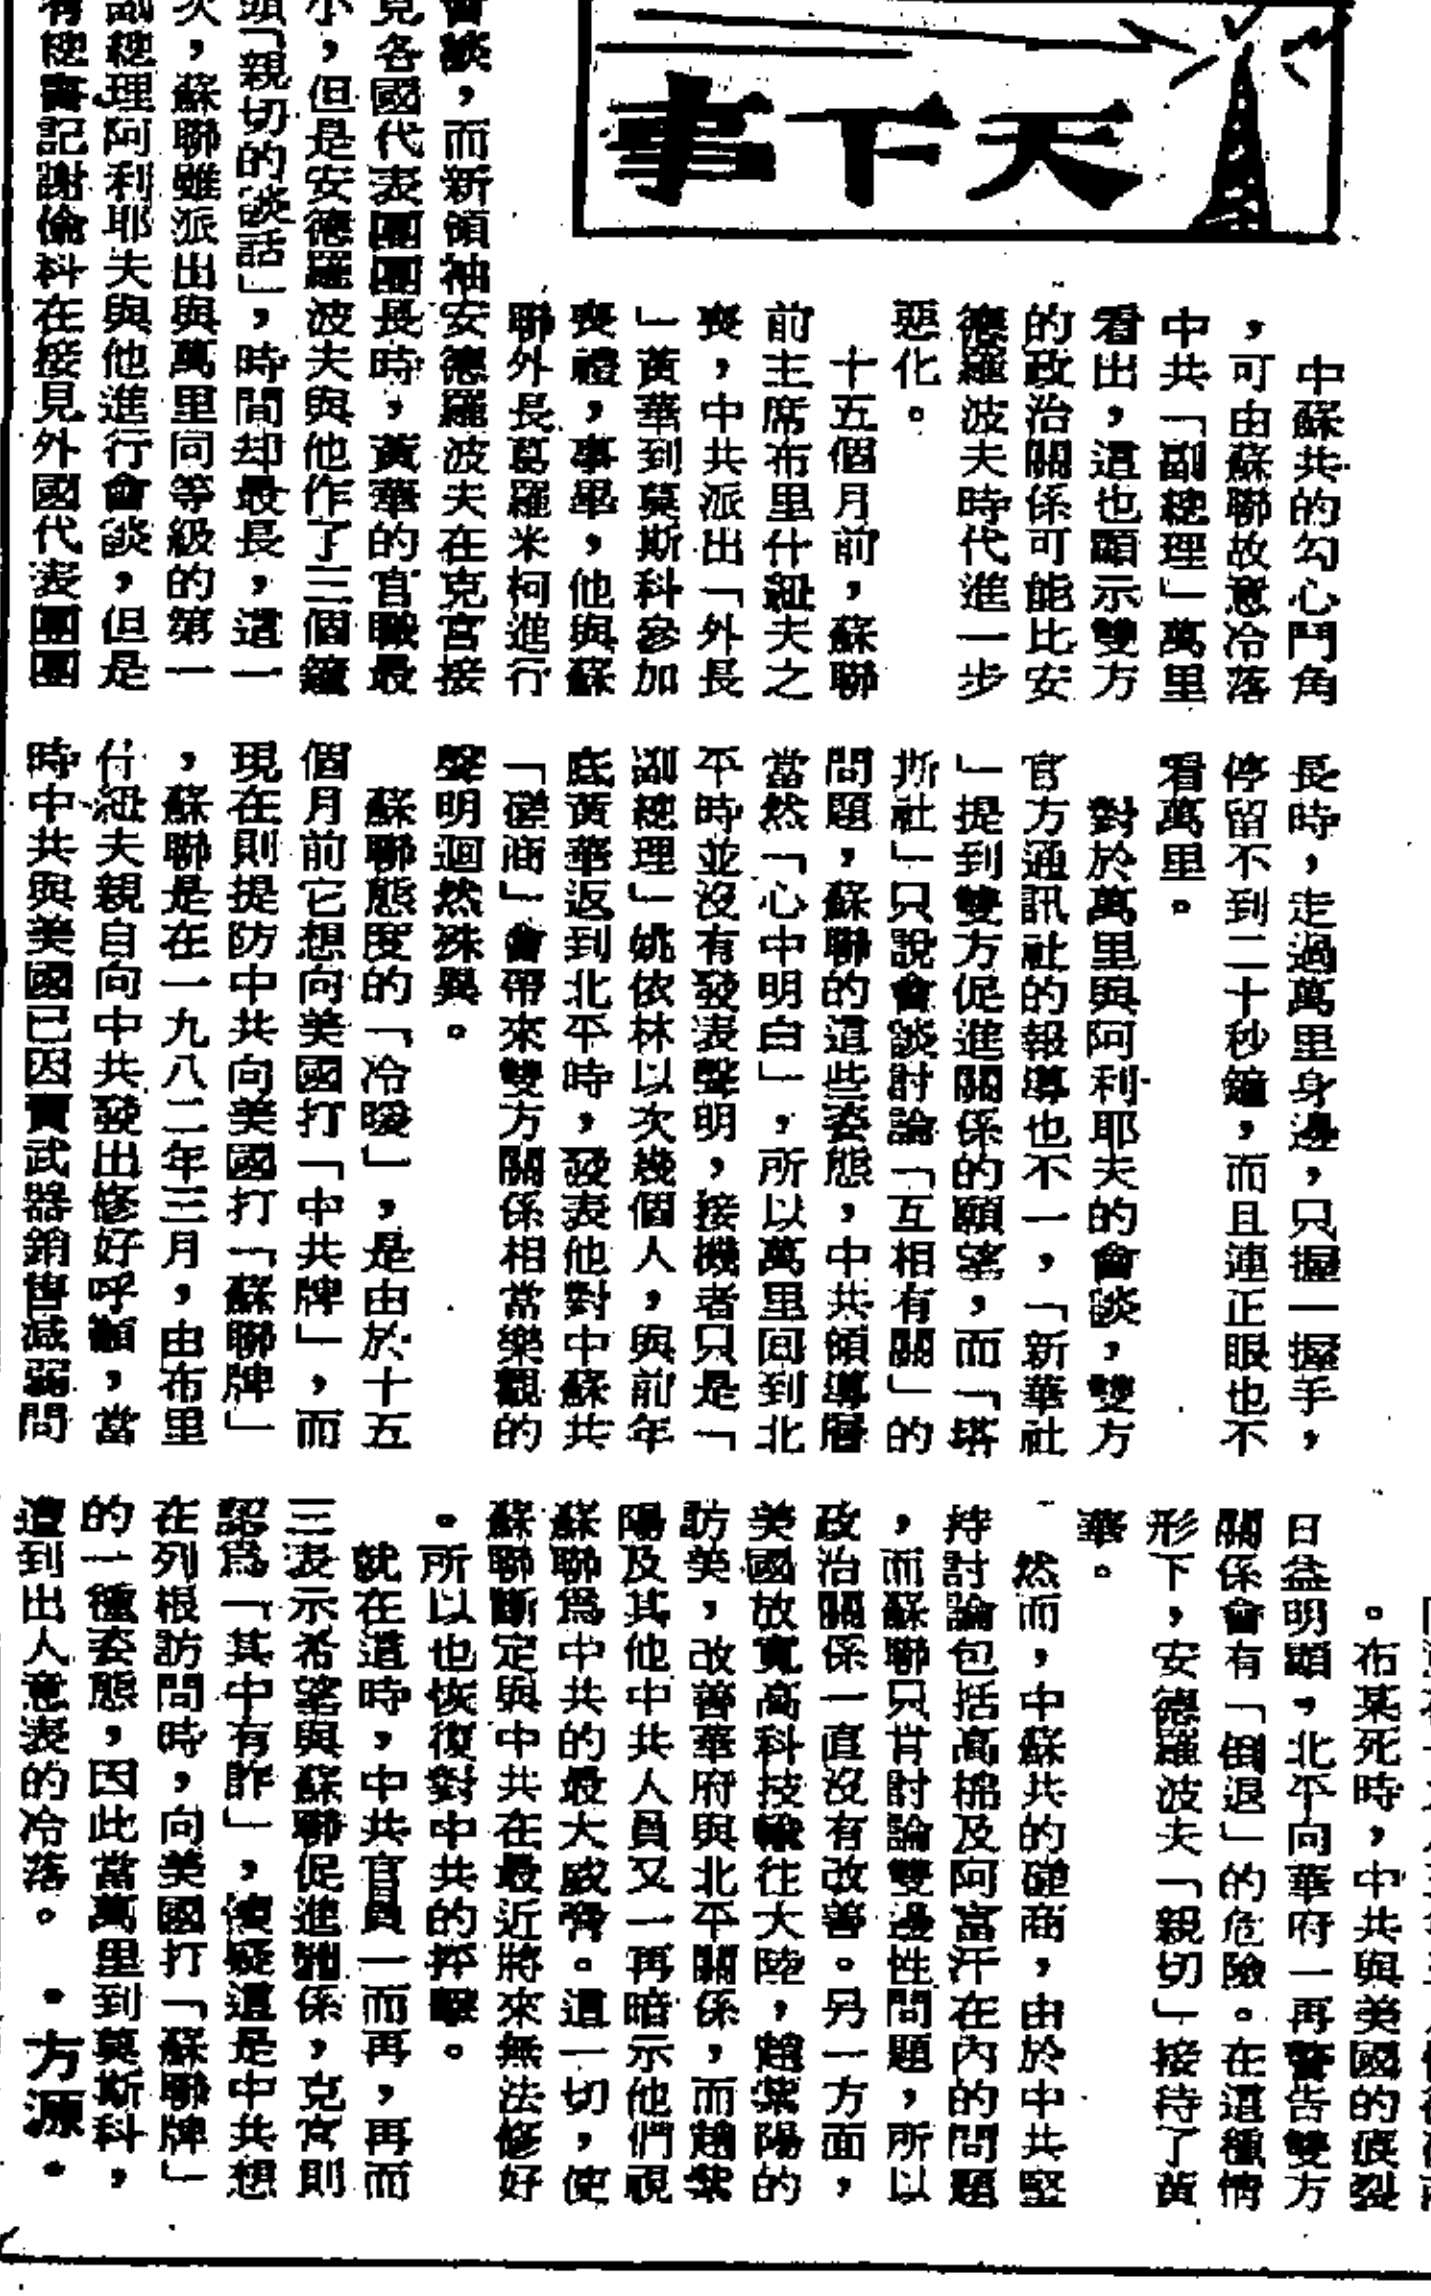 天下事
中蘇共的勾心鬥角
，可由蘇聯故意冷落
中共「副總理」萬里
看出，這也顯示雙方
的政治關係可能比安
德羅波夫時代進一步
惡化。
十五個月前，蘇聯
前主席布里什紐夫之
喪，中共派出「外長
」黃華到莫斯科參加
喪禮，事畢，他與蘇
聯外長葛羅米柯進行
會談，而新領袖安德羅波夫在克宮接
見各國代表團團長時，黃華的官職最
小，但是安德羅波夫與他作了三個鐘
頭「親切的談話」，時間却最長，這一
次，蘇聯雖派出與萬里同等級的第一
副總理阿利耶夫與他進行會談，但是
總書記謝倫科在接見外國代表團團
長時，走過萬里身邊，只握一握手，
停留不到二十秒鐘，而且連正眼也不
看萬里。
對於萬里與阿利耶夫的會談，雙方
官方通訊社的報導也不一，「新華社
」提到雙方促進關係的願望，而「塔
斯社」只說會談討論「互相有關」的
問題，蘇聯的這些姿態，中共領導層
當然「心中明白」，所以萬里回到北
平時並沒有發表聲明，接機者只是「
副總理」姚依林以次幾個人，與前年
底黃華返到北平時，發表他對中蘇共
「磋商」會帶來雙方關係相當樂觀的
聲明迴然殊異。
蘇聯態度的「冷暖」，是由於十五
個月前它想向美國打「中共牌」，而
現在則提防中共向美國打「蘇聯牌」
，蘇聯是在一九八二年三月，由布里
什紐夫親自向中共發出修好呼籲，當
時中共與美國已因賣武器銷售減弱問
。布某死時，中共與美國的痕裂
日益明顯，北平向華府一再警告雙方
關係會有「倒退」的危險。在這種情
形下，安德羅波夫「親切」接待了黃
華。
然而，中蘇共的磋商，由於中共堅
持討論包括高棉及阿富汗在內的問題
，而蘇聯只肯討論雙邊性問題，所以
政治關係一直沒有改善。另一方面，
美國放寬高科技輸往大陸，趙紫陽的
訪美，改善華府與北平關係，而趙紫
陽及其他中共人員又一再暗示他們視
蘇聯爲中共的最大威脅。這一切，使
蘇聯斷定與中共在最近將來無法修好
。所以也恢復對中共的抨擊。
就在這時，中共官員一而再，再而
三表示希望與蘇聯促進關係，克宮則
認爲「其中有詐」，懷疑這是中共想
在列根訪問時，向美國打「蘇聯牌」
的一種姿態，因此當萬里到莫斯科，
遭到出人意表的冷落。 •方源•